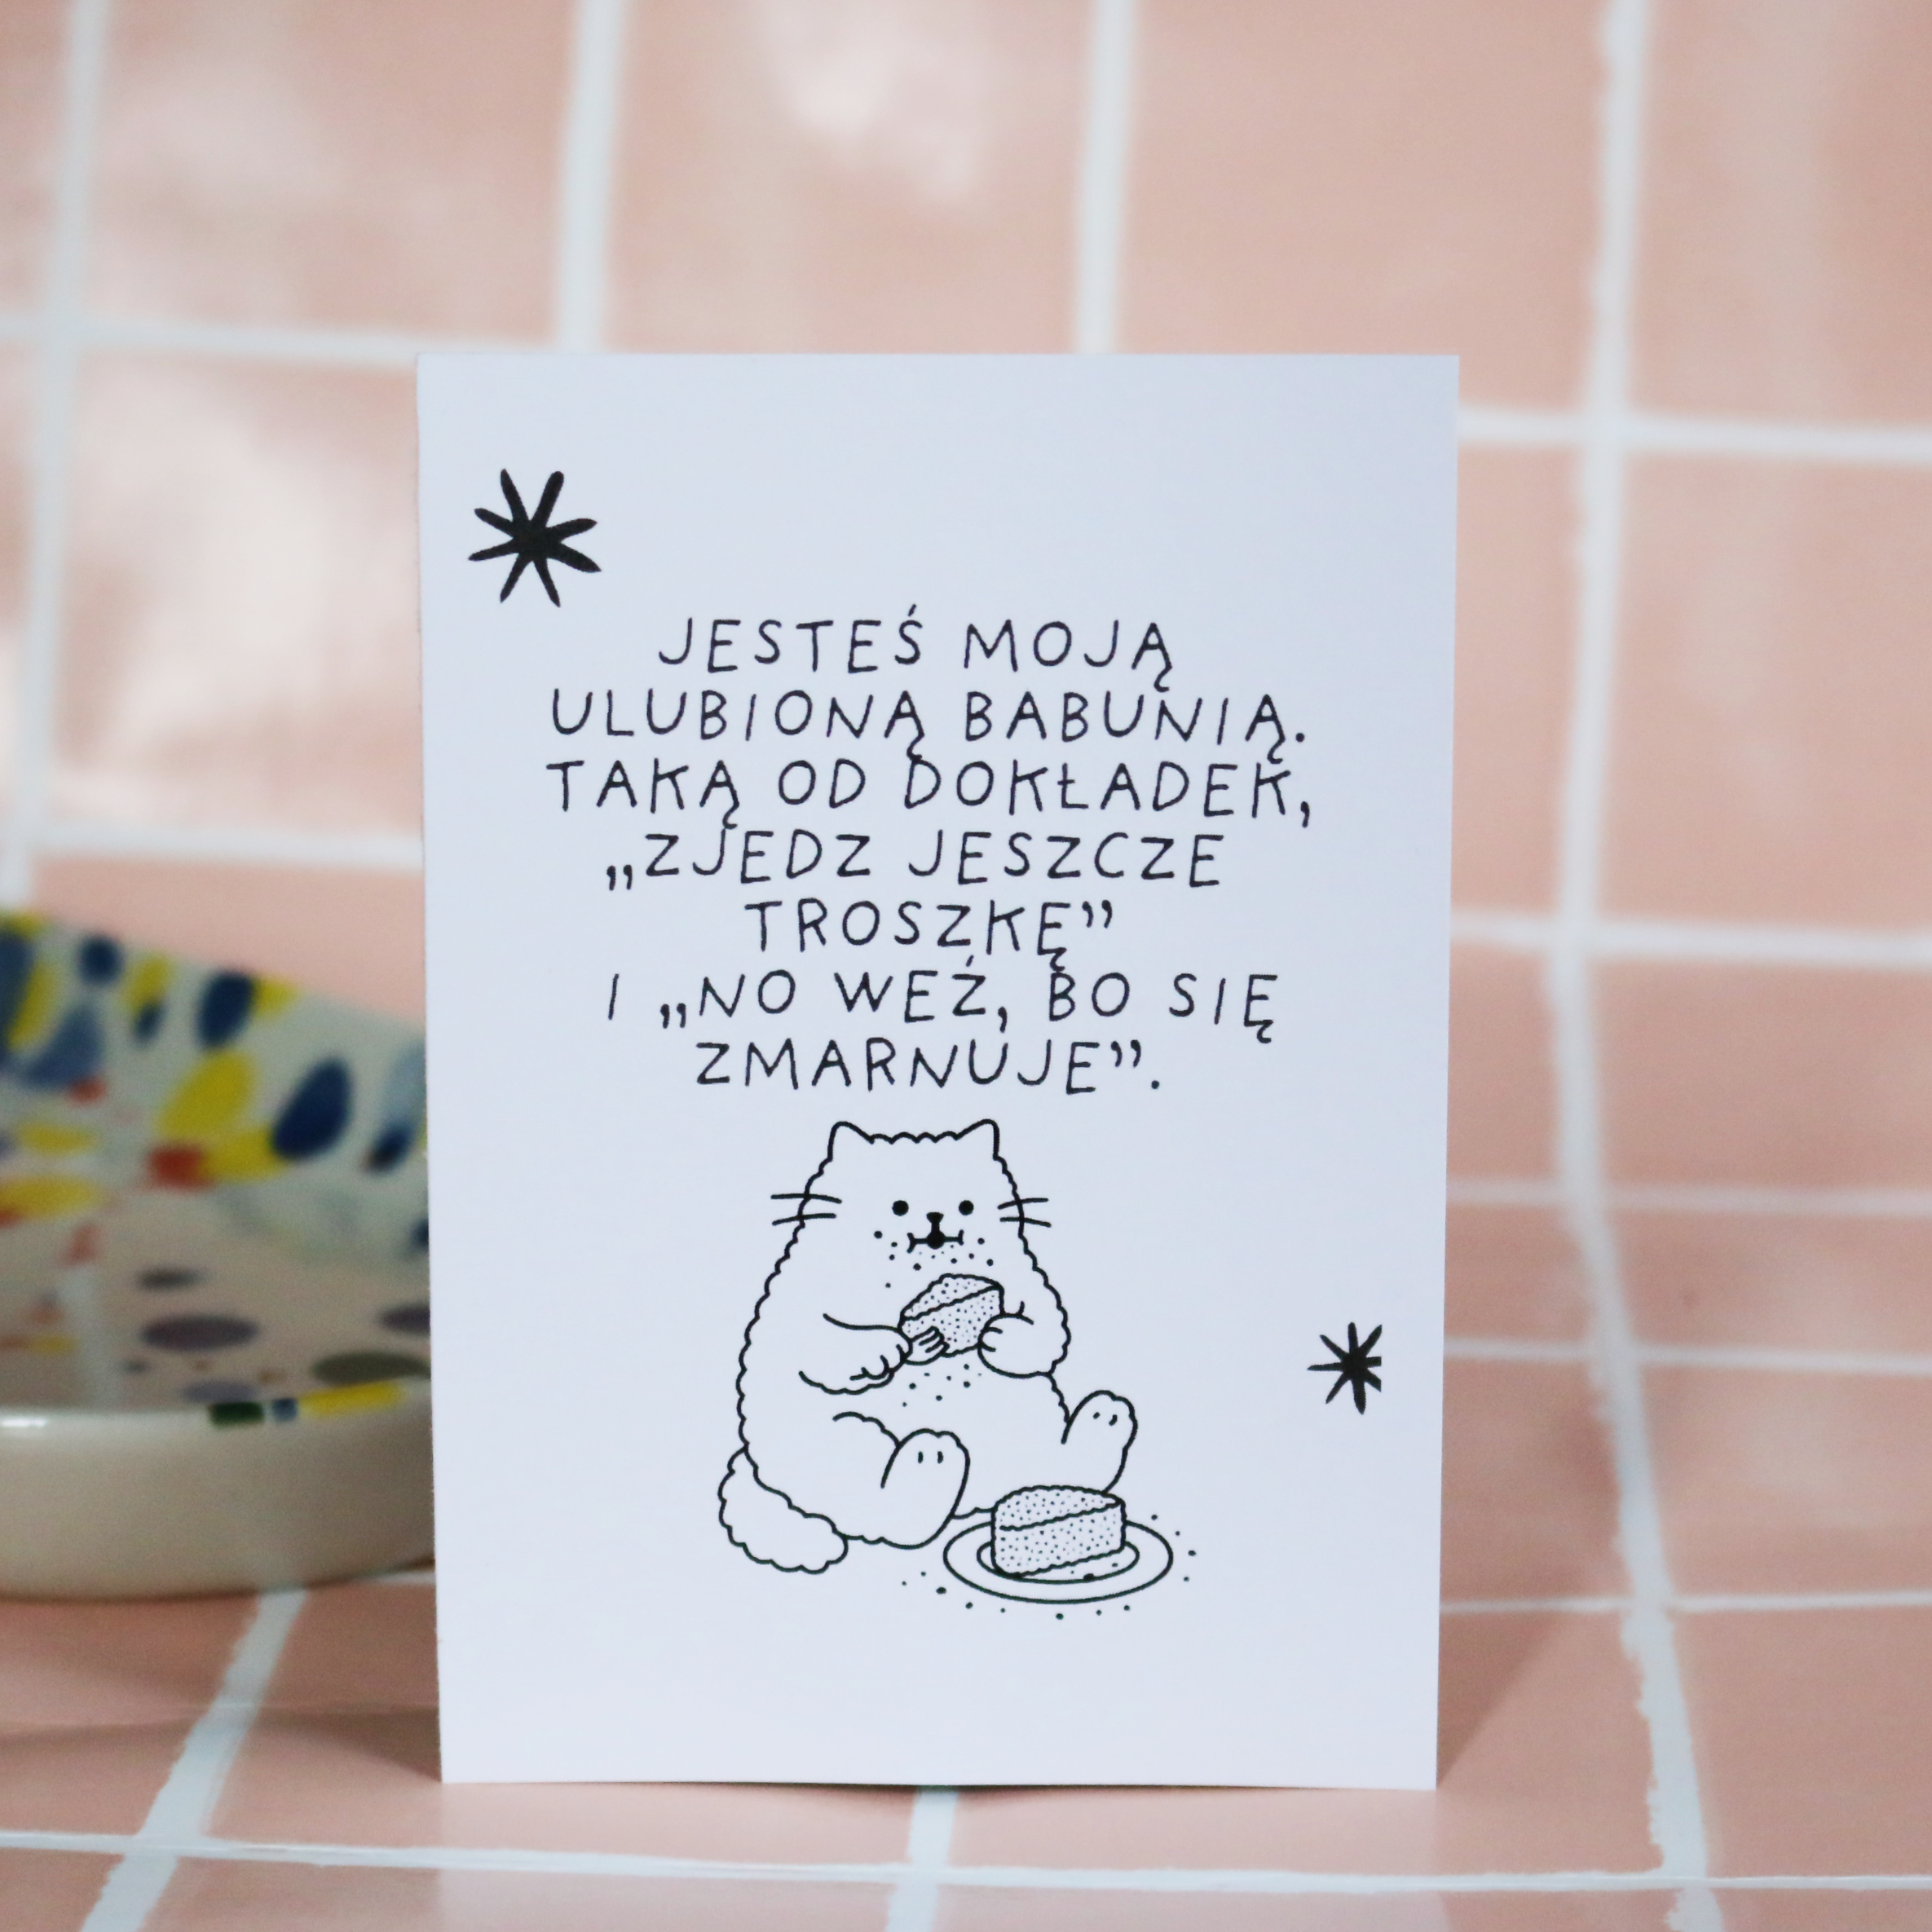 JESTEŚ MOJĄ
ULUBIONĄ BABUNIĄ.
TAKĄ OD DOKŁADEK,
„ZJEDZ JESZCZE
TROSZKĘ”
I „NO WEŹ, BO SIĘ
ZMARNUJE”.